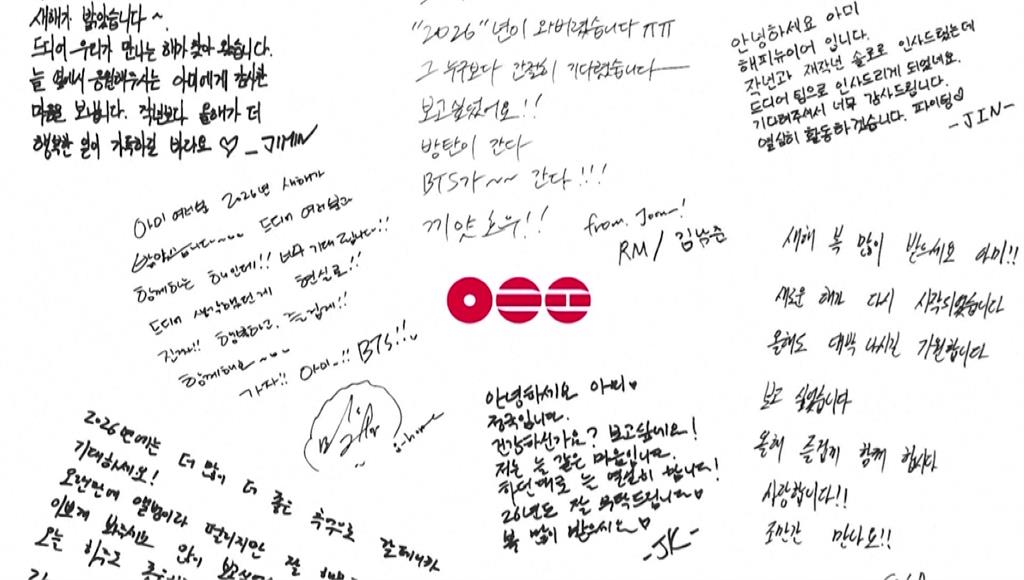 새해가 밝았습니다~.
드디어 우리가 만나는 해가 찾아 왔습니다.
늘 옆에서 응원해주시는 아미에게 감사한
마음을 보냅니다. 작년보다 올해가 더
행복한 일이 가득하길 바라요 ♡ _ JIMIN
"2026"년이 와버렸습니다 ㅠㅠ
그 누구보다 간절히 기다렸습니다
보고싶었어요!!
방탄이 간다
BTS가~~ 간다!!!
끼얏호우!!
from. Joon!
RM / 김남준
안녕하세요 아미
해피뉴이어 입니다.
작년과 재작년 솔로로 인사드렸는데
드디어 팀으로 인사드리게 되었네요.
기다려주셔서 너무 감사드립니다.
열심히 활동하겠습니다. 파이팅♡
-JIN-
아미 여러분 2026년 새해가
밝았습니다~~ 드디어 여러분과
함께하는 해인데!! 너무 기대됩니다!!
드디어 생각했던게 현실로!!
진짜!! 행복하고, 즐겁게!!
함께해요~~
가자!! 아미..!! BTS!!
j-hope
새해 복 많이 받으세요 아미!!
새로운 해가 다시 시작되었습니다
올해도 대박 나시길 기원합니다
보고 싶었습니다
올해 즐겁게 함께 합시다
사랑합니다!!
조만간 만나요!!
안녕하세요 아미♥
정국입니다.
건강하신가요? 보고싶네요!
저는 늘 같은 마음입니다.
하던대로 늘 열심히 합니다!
26년도 잘 부탁드립니다♥
복 많이 받으세요♡
-JK-
2026년에는 더 많이 더 좋은 추구로
기대하세요!
오랜만에 앨범이라 떨리지만 잘
이쁘게 봐주세요 많이
오늘 하루도